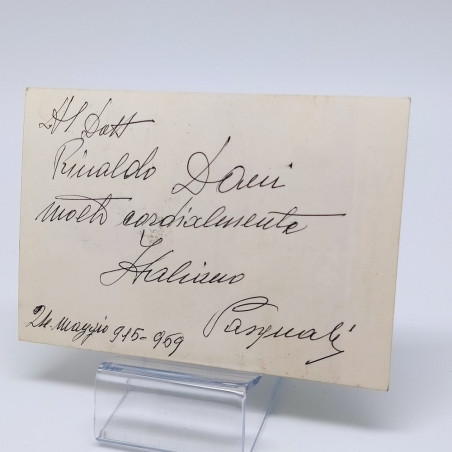 Al Dott
Rinaldo Dani
molto cordialmente
Italiano
Pasquali
24 Maggio 915-959